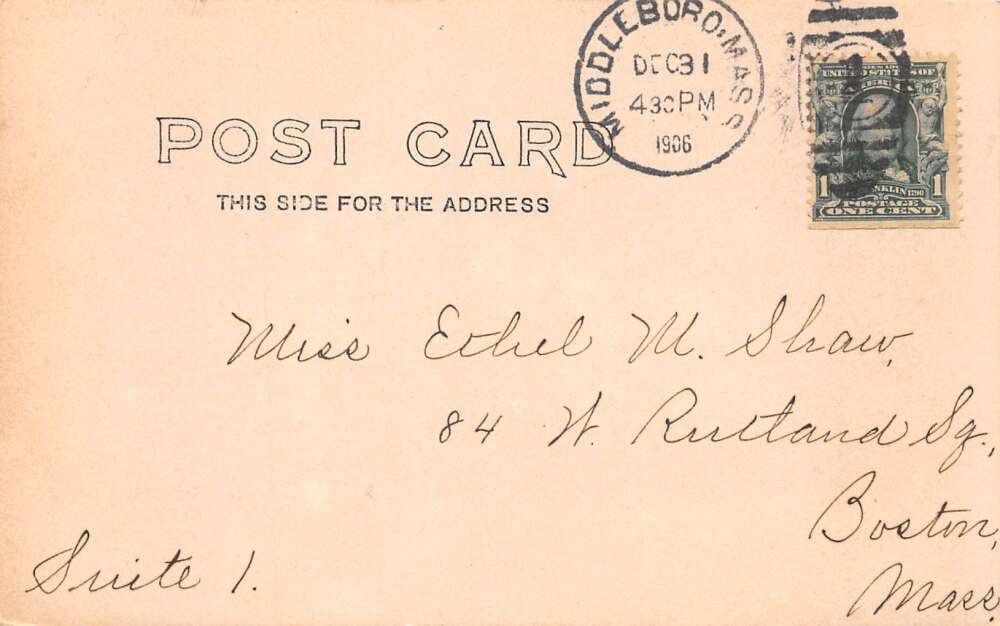 MIDDLEBORO, MASS
DEC 31
430 PM
1906
POST CARD
THIS SIDE FOR THE ADDRESS
UNITED STATES OF
1 FRANKLIN 1790 1
POSTAGE
ONE CENT
Miss Ethel M. Shaw,
84 W. Rutland Sq.,
Boston,
Mass.
Suite 1.